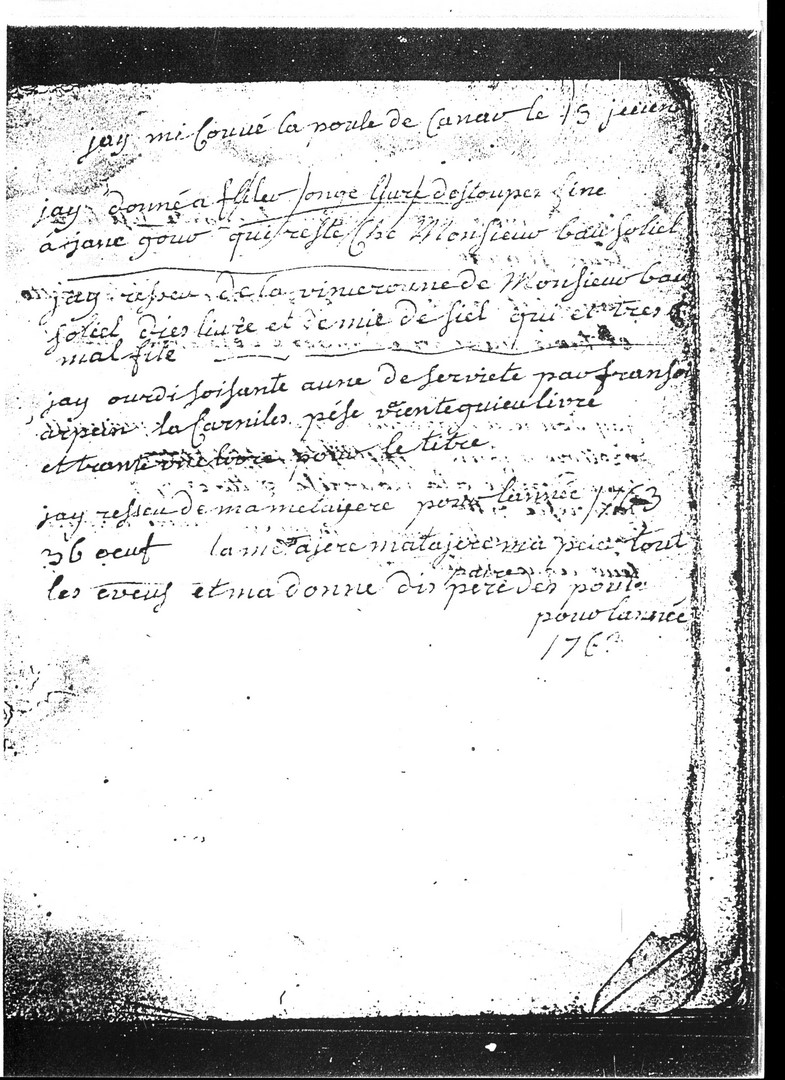 jay mi Couvé la poule de Canar le 13 jeuen
jay donné a filer onge livre destoupes fine
a jane gour qui reste Che Monsieur bau soliel
jay resseu de la vineronne de Monsieur bau
soliel dies livre et demie de fiel qui et tres
mal filé
jay ourdi soisante aune de serviete par fransoi
arpein la Carniles pése viente livre
et trante livre pour le titre
jay resseu de ma metayere pour lannée 1763
36 oeuf la metajere matajere ma peié tout
les eveuf et ma donne dis paires pere des poule
pour lannée
1763